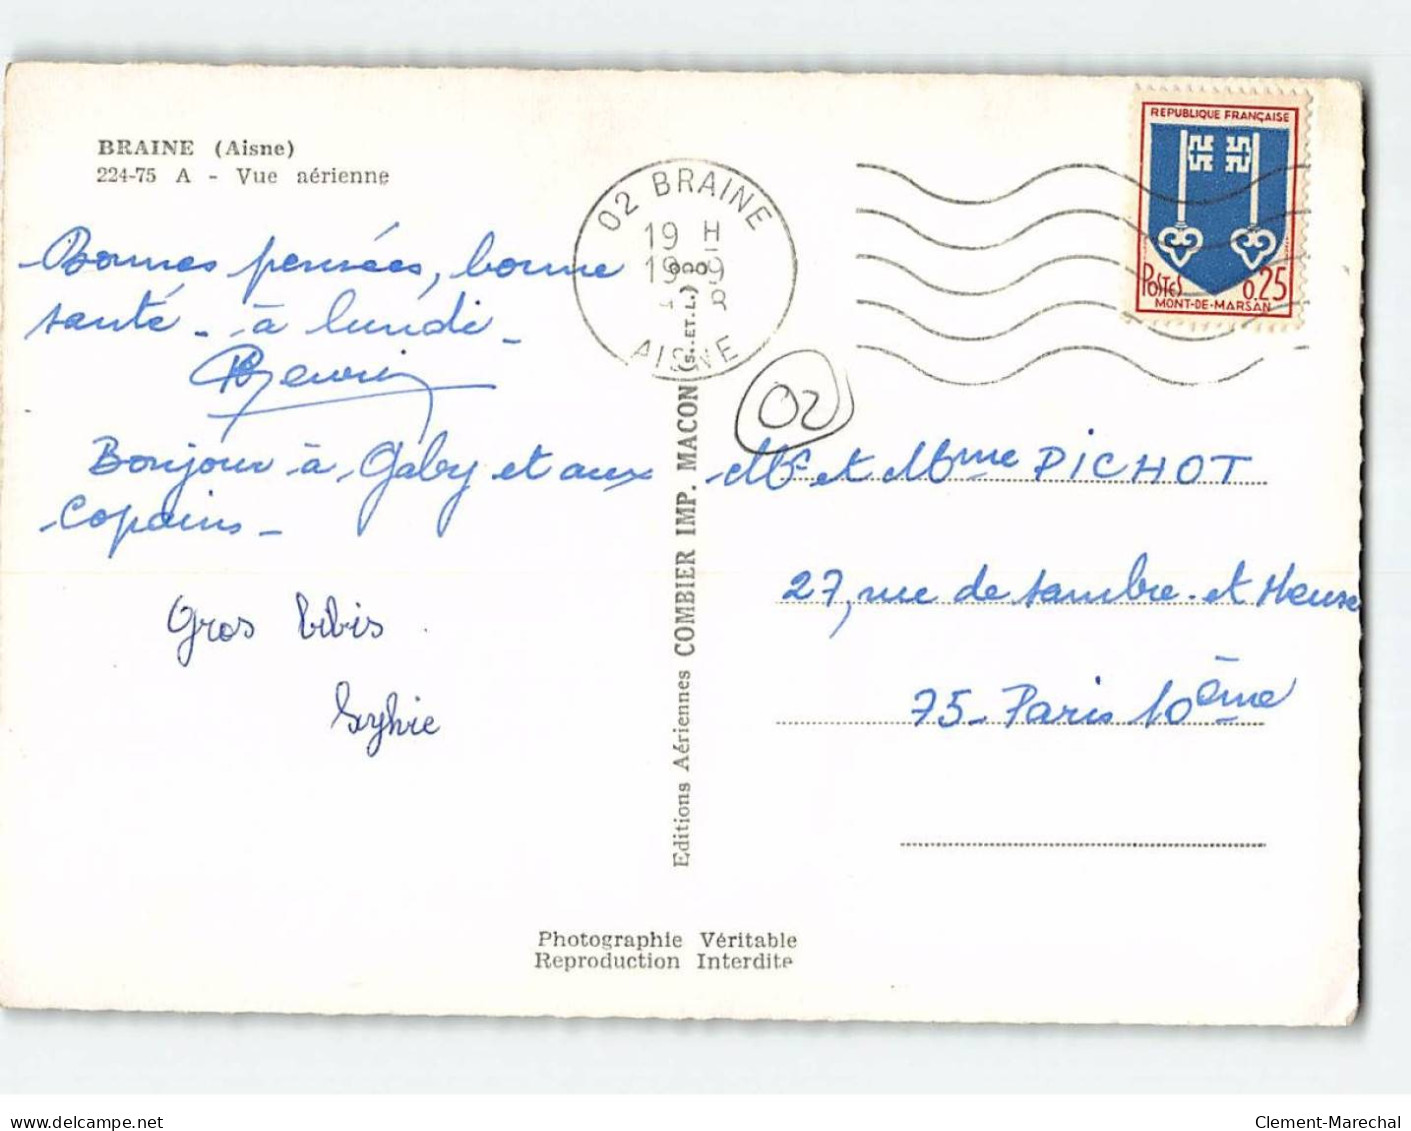 BRAINE (Aisne)
224-75 A - Vue aérienne
Bonnes pensées, bonne
santé - à lundi -
Bonjour à Gaby et aux
copains -
Gros bibis.
Sylvie
02 BRAINE
19 H
19 - 9
AISNE
REPUBLIQUE FRANÇAISE
POSTES 0,25
MONT-DE-MARSAN
02
Mr et Mme PICHOT
27, rue de Sambre-et Meuse
75 - Paris 10ème
Editions Aériennes COMBIER IMP. MACON (S.-ET-L.)
Photographie Véritable
Reproduction Interdite
delcampe.net
Clement-Marechal